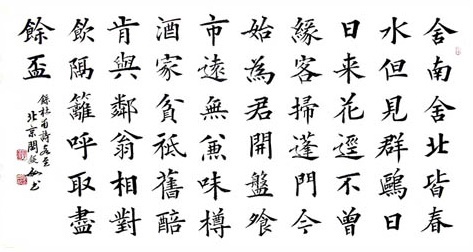 舍南舍北皆春
水但見群鷗日
日来花逕不曾
緣客掃蓬門今
始為君開盤飧
市遠無兼味樽
酒家貧祗舊醅
肯與鄰翁相對
飲隔籬呼取盡
餘盃
錄杜甫詩客至
北京閻書